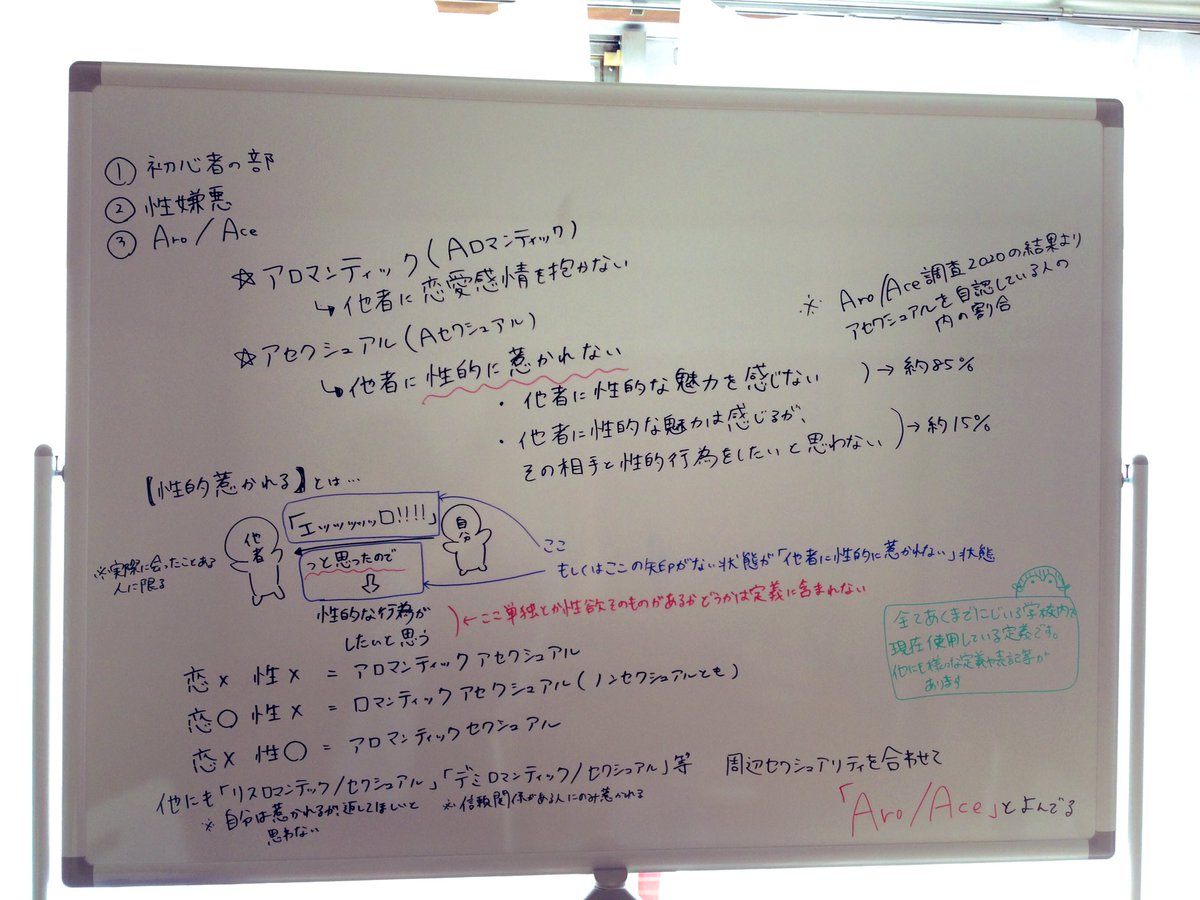 ① 初心者の部
② 性嫌悪
③ Aro/Ace
☆ アロマンティック(Aロマンティック)
↳他者に恋愛感情を抱かない
☆ アセクシュアル(Aセクシュアル)
↳他者に性的に惹かれない
・他者に性的な魅力を感じない )→約85%
・他者に性的な魅力は感じるが、
その相手と性的行為をしたいと思わない )→約15%
※ Aro/Ace調査2020の結果より
アセクシュアルを自認している人の
内の割合
【性的惹かれる】とは…
「エッッッッッロ!!!!」
他者
自分
っと思ったので
⇩
性的な行為が
したいと思う
※実際に会ったことある
人に限る
ここ
もしくはここの矢印がない状態が「他者に性的に惹かれない」状態
)←ここ単独とか性欲そのものがあるかどうかは定義に含まれない
全てあくまでにじいろ学校内で
現在使用している定義です。
他にも様々な定義や表記等が
あります
恋× 性× = アロマンティックアセクシュアル
恋○ 性× = ロマンティックアセクシュアル(ノンセクシュアルとも)
恋× 性○ = アロマンティックセクシュアル
他にも「リスロマンテック/セクシュアル」「デミロマンティック/セクシュアル」等 周辺セクシュアリティを合わせて
※ 自分は惹かれるが、返してほしいと
思わない
※信頼関係がある人にのみ惹かれる
「Aro/Ace」とよんでる